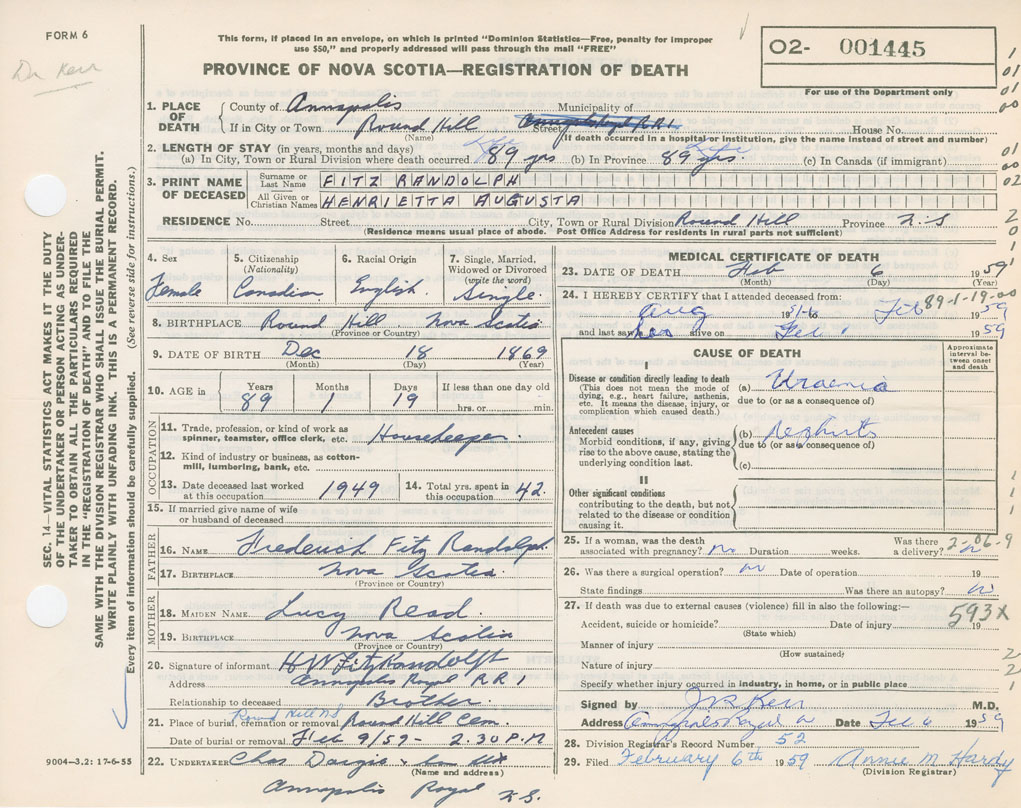 FORM 6
Dr Kerr
This form, if placed in an envelope, on which is printed "Dominion Statistics—Free, penalty for improper
use $50," and properly addressed will pass through the mail "FREE"
PROVINCE OF NOVA SCOTIA—REGISTRATION OF DEATH
O2- 001445
For use of the Department only
SEC. 14—VITAL STATISTICS ACT MAKES IT THE DUTY
OF THE UNDERTAKER OR PERSON ACTING AS UNDER-
TAKER TO OBTAIN ALL THE PARTICULARS REQUIRED
IN THE "REGISTRATION OF DEATH" AND TO FILE THE
SAME WITH THE DIVISION REGISTRAR WHO SHALL ISSUE THE BURIAL PERMIT.
WRITE PLAINLY WITH UNFADING INK. THIS IS A PERMANENT RECORD.
Every item of information should be carefully supplied. (See reverse side for instructions.)
1. PLACE OF DEATH
County of Annapolis Municipality of
If in City or Town Round Hill Street House No.
(Name) (If death occurred in a hospital or institution, give the name instead of street and number)
2. LENGTH OF STAY (in years, months and days)
(a) In City, Town or Rural Division where death occurred Life 89 yrs (b) In Province Life 89 yrs. (c) In Canada (if immigrant)
3. PRINT NAME OF DECEASED
Surname or Last Name FITZ RANDOLPH
All Given or Christian Names HENRIETTA AUGUSTA
RESIDENCE No. Street City, Town or Rural Division Round Hill Province N.S
(Residence means usual place of abode. Post Office Address for residents in rural parts not sufficient)
4. Sex
Female
5. Citizenship
(Nationality)
Canadian
6. Racial Origin
English
7. Single, Married,
Widowed or Divorced
(write the word)
Single.
8. BIRTHPLACE Round Hill. Nova Scotia
(Province or Country)
9. DATE OF BIRTH Dec 18 1869
(Month) (Day) (Year)
10. AGE in
Years Months Days If less than one day old
89 1 19 hrs. or min.
OCCUPATION
11. Trade, profession, or kind of work as
spinner, teamster, office clerk, etc. Housekeeper.
12. Kind of industry or business, as cotton-
mill, lumbering, bank, etc.
13. Date deceased last worked
at this occupation 1949
14. Total yrs. spent in
this occupation 42.
15. If married give name of wife
or husband of deceased
FATHER
16. NAME Frederick Fitz Randolph.
17. BIRTHPLACE Nova Scotia.
(Province or Country)
MOTHER
18. MAIDEN NAME. Lucy Read.
19. BIRTHPLACE Nova Scotia
(Province or Country)
20. Signature of informant H W FitzRandolph
Address Annapolis Royal R R 1
Relationship to deceased Brother.
21. Place of burial, cremation or removal Round Hill NS Round Hill Cem.
Date of burial or removal Feb 9/59 - 2.30 P.M
22. UNDERTAKER Chas Dargie &
(Name and address)
Annapolis Royal N.S.
9004—3.2: 17-6-55
MEDICAL CERTIFICATE OF DEATH
23. DATE OF DEATH Feb 6 1959
(Month) (Day) (Year)
24. I HEREBY CERTIFY that I attended deceased from:
89-1-19-00
Aug 1951 to Feb 1959
and last saw alive on Feb 1959
CAUSE OF DEATH
Approximate interval between onset and death
I
Disease or condition directly leading to death
(This does not mean the mode of
dying, e.g., heart failure, asthenia,
etc. It means the disease, injury, or
complication which caused death.)
(a) Uraemia
due to (or as a consequence of)
Antecedent causes
Morbid conditions, if any, giving
rise to the above cause, stating the
underlying condition last.
(b) Nephritis
due to (or as a consequence of)
(c)
II
Other significant conditions
contributing to the death, but not
related to the disease or condition
causing it.
25. If a woman, was the death
associated with pregnancy? no Duration weeks. Was there a delivery? n
2-06-9
26. Was there a surgical operation? no Date of operation 19
State findings Was there an autopsy? no
27. If death was due to external causes (violence) fill in also the following:—
593X
Accident, suicide or homicide? Date of injury 19
(State which)
Manner of injury
(How sustained)
Nature of injury
Specify whether injury occurred in industry, in home, or in public place
Signed by Kerr M.D.
Address Annapolis Royal Date Feb 6 1959
28. Division Registrar's Record Number 52
29. Filed February 6th 1959 Annie M Hardy
(Division Registrar)